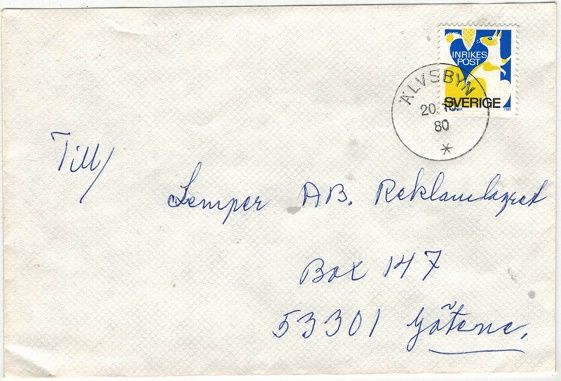 INRIKES
POST
SVERIGE
ÄLVSBYN
20.10
80
*
Till/
Semper AB. Reklamlagret
Box 147
53301 Götene.